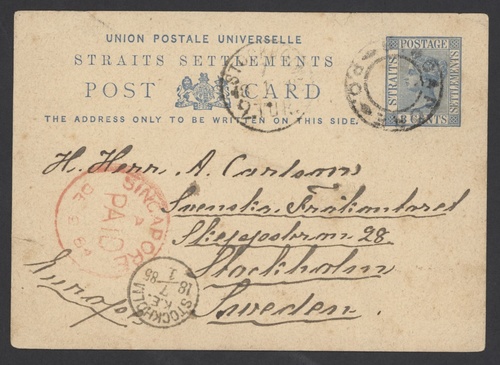 UNION POSTALE UNIVERSELLE
STRAITS SETTLEMENTS
POST CARD
THE ADDRESS ONLY TO BE WRITTEN ON THIS SIDE.
STRAITS POSTAGE SETTLEMENTS
8 CENTS
H. Herr A. Carlson
Svenska Frökontoret
Skeppsbron 28
Stockholm
Sweden.
Europe
SINGAPORE
PAID
STOCKHOLM
K.E.
18 7 85